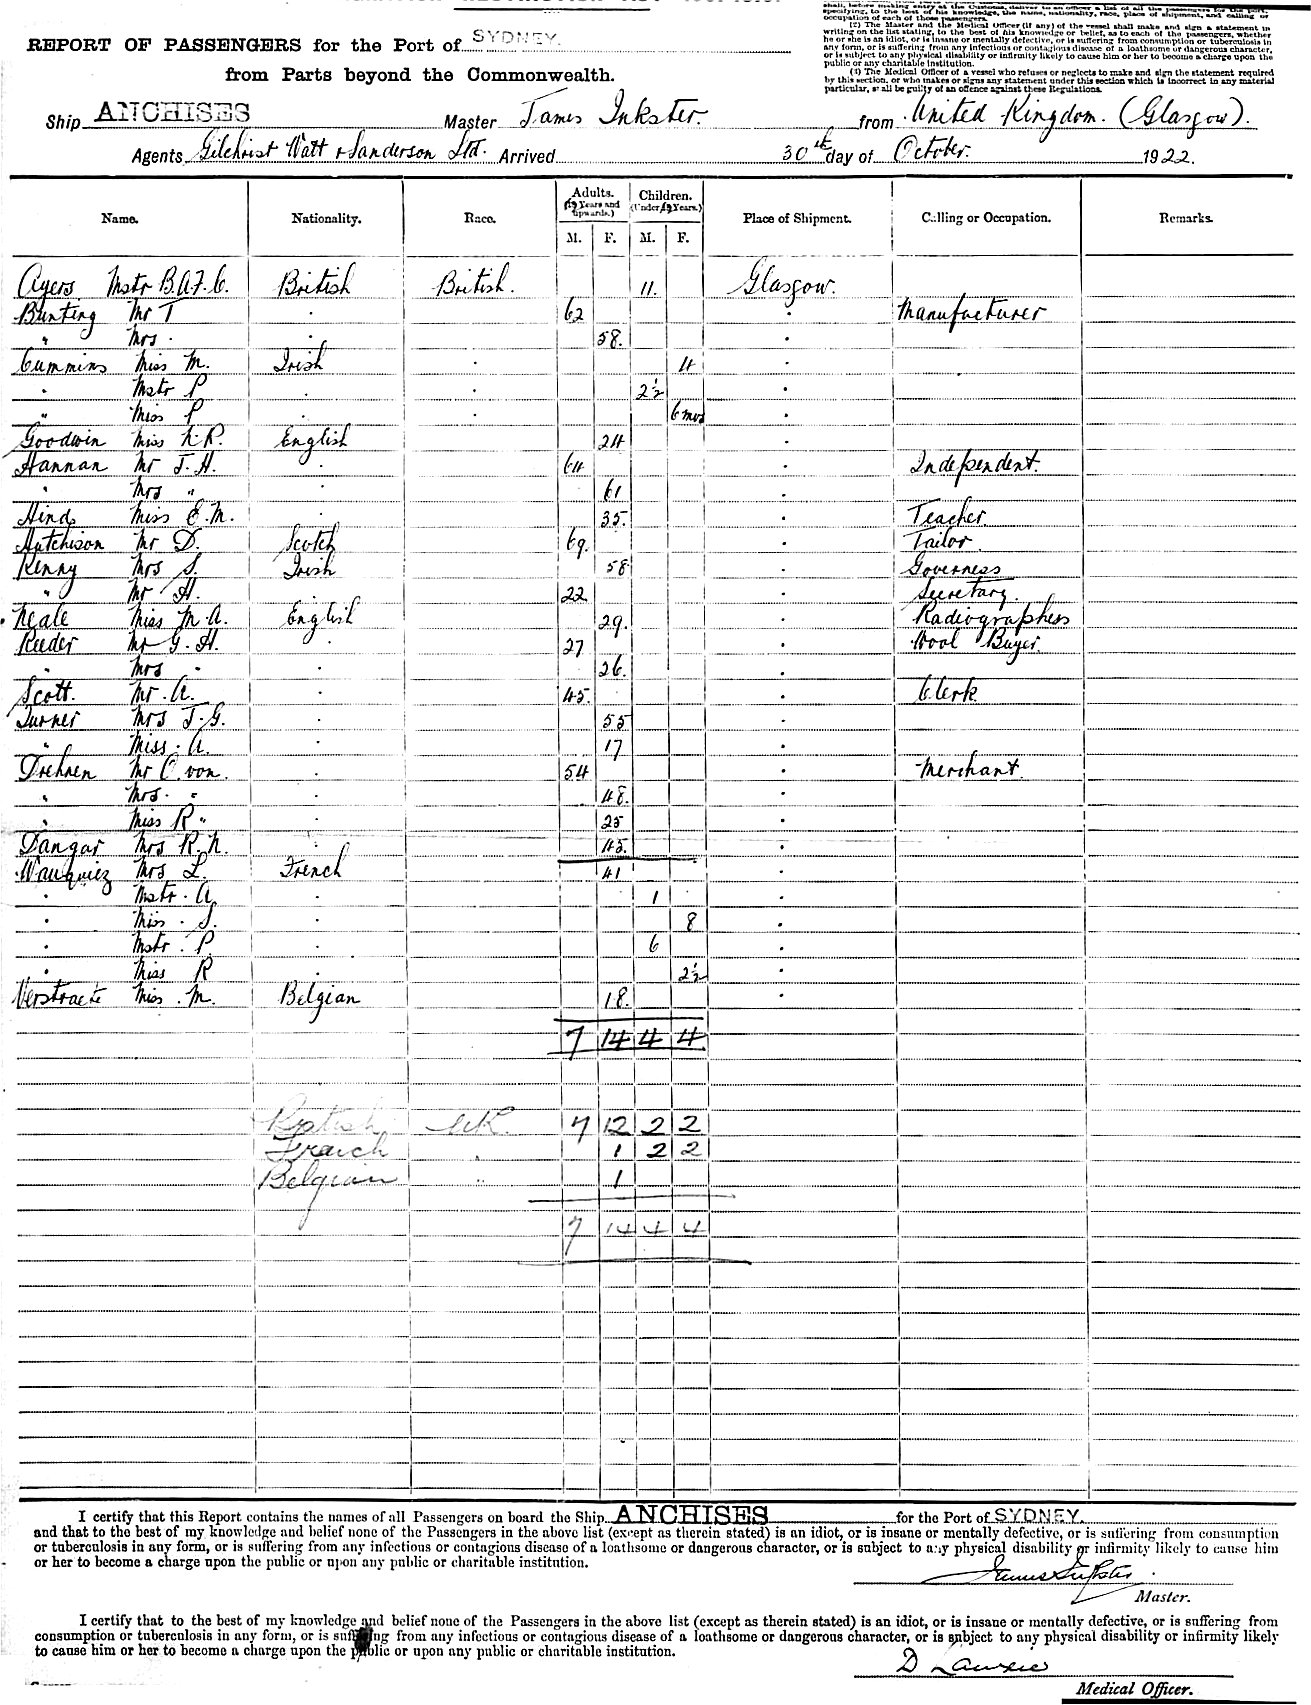 shall, before making entry at the Customs, deliver to an officer a list of all the passengers for the port,
specifying, to the best of his knowledge, the name, nationality, race, place of shipment, and calling or
occupation of each of those passengers.
(2) The Master and the Medical Officer (if any) of the vessel shall make and sign a statement in
writing on the list stating, to the best of his knowledge or belief, as to each of the passengers, whether
he or she is an idiot, or is insane or mentally defective, or is suffering from consumption or tuberculosis in
any form, or is suffering from any infectious or contagious disease of a loathsome or dangerous character,
or is subject to any physical disability or infirmity likely to cause him or her to become a charge upon the
public or any charitable institution.
(3) The Medical Officer of a vessel who refuses or neglects to make and sign the statement required
by this section, or who makes or signs any statement under this section which is incorrect in any material
particular, shall be guilty of an offence against these Regulations.
REPORT OF PASSENGERS for the Port of SYDNEY.
from Parts beyond the Commonwealth.
Ship ANCHISES Master James Inkster. from United Kingdom. (Glasgow).
Agents Gilchrist Watt & Sanderson Ltd. Arrived 30th day of October. 1922.
Name. Nationality. Race. Adults. (12 Years and upwards.) Children. (Under 12 Years.) Place of Shipment. Calling or Occupation. Remarks.
M. F. M. F.
Ayers Mstr B.A.F.C. British British. 11. Glasgow.
Bunting Mr T . 62 . Manufacturer
" Mrs . . 58. .
Cummins Miss M. Irish . 4 .
. Mstr P . . 2½ .
" Miss P . . 6 mos .
Goodwin Miss N.R. English 24 .
Hannan Mr J.H. . 64 . Independent.
. Mrs " . 61 .
Hind Miss E.M. . 35. . Teacher
Hutchison Mr D. Scotch 69. . Tailor
Kenny Mrs S. Irish 58 . Governess
" Mr H. . 22 . Secretary.
Neale Miss M.A. English 29. . Radiographess
Reeder Mr G.H. . 27 . Wool Buyer.
" Mrs " . 26. .
Scott. Mr. A. . 45. . Clerk
Turner Mrs J.G. . 55 .
" Miss. A. . 17 .
Drehnen Mr C. von. . 54 . Merchant.
" Mrs. " . 48. .
" Miss R " . 25 .
Dangar Mrs R.N. . 45. .
Wauquiez Mrs L. French 41 .
. Mstr. A . 1 . .
. Miss. S. . 8 .
. Mstr. P. . 6 .
. Miss R . 2½ .
Verstraete Miss. M. Belgian 18. .
7 14 4 4
British UK. 7 12 2 2
French " 1 2 2
Belgian " 1
7 14 4 4
I certify that this Report contains the names of all Passengers on board the Ship ANCHISES for the Port of SYDNEY.
and that to the best of my knowledge and belief none of the Passengers in the above list (except as therein stated) is an idiot, or is insane or mentally defective, or is suffering from consumption
or tuberculosis in any form, or is suffering from any infectious or contagious disease of a loathsome or dangerous character, or is subject to any physical disability or infirmity likely to cause him
or her to become a charge upon the public or upon any public or charitable institution.
James Inkster.
Master.
I certify that to the best of my knowledge and belief none of the Passengers in the above list (except as therein stated) is an idiot, or is insane or mentally defective, or is suffering from
consumption or tuberculosis in any form, or is suffering from any infectious or contagious disease of a loathsome or dangerous character, or is subject to any physical disability or infirmity likely
to cause him or her to become a charge upon the public or upon any public or charitable institution.
D Lawrie
Medical Officer.